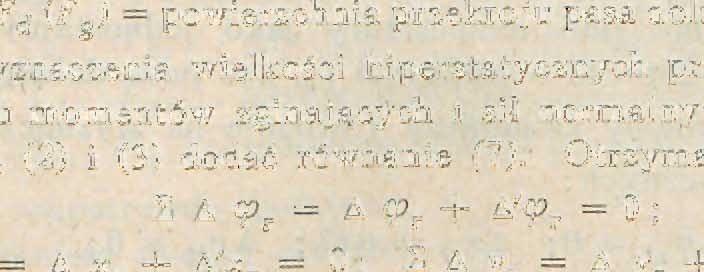 F_d (F_g) = powierzchnia przekroju pasa dol
yznaczenia wielkości hiperstatycznych pr
u momentów zginających i sił normalny
(2) i (3) dodać równanie (7): Otrzyma
Σ Δ φ_r = Δ φ_r + Δ'φ_r = 0;
= Δ x + Δ'x = 0; Σ Δ y = Δ y +